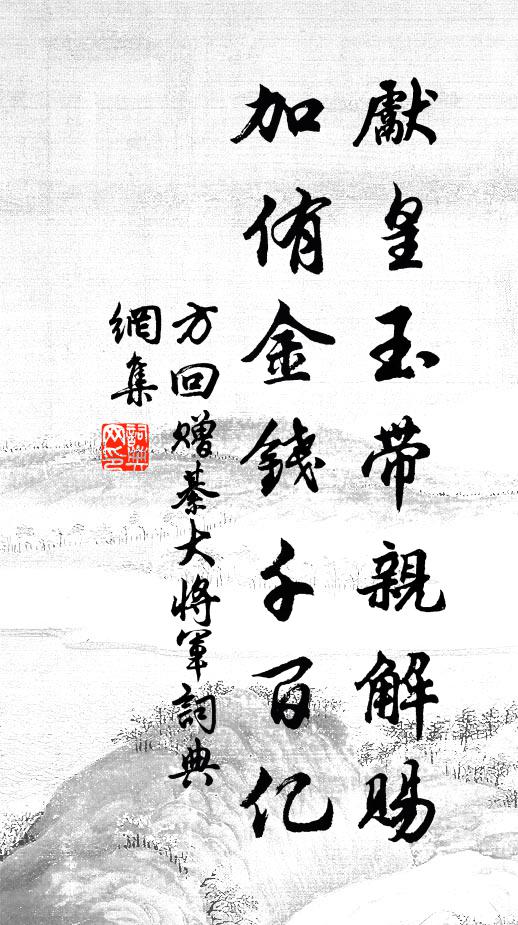 獻皇玉帶親解賜
加侑金錢千百亿
方回赠綦大将軍詞典
網集